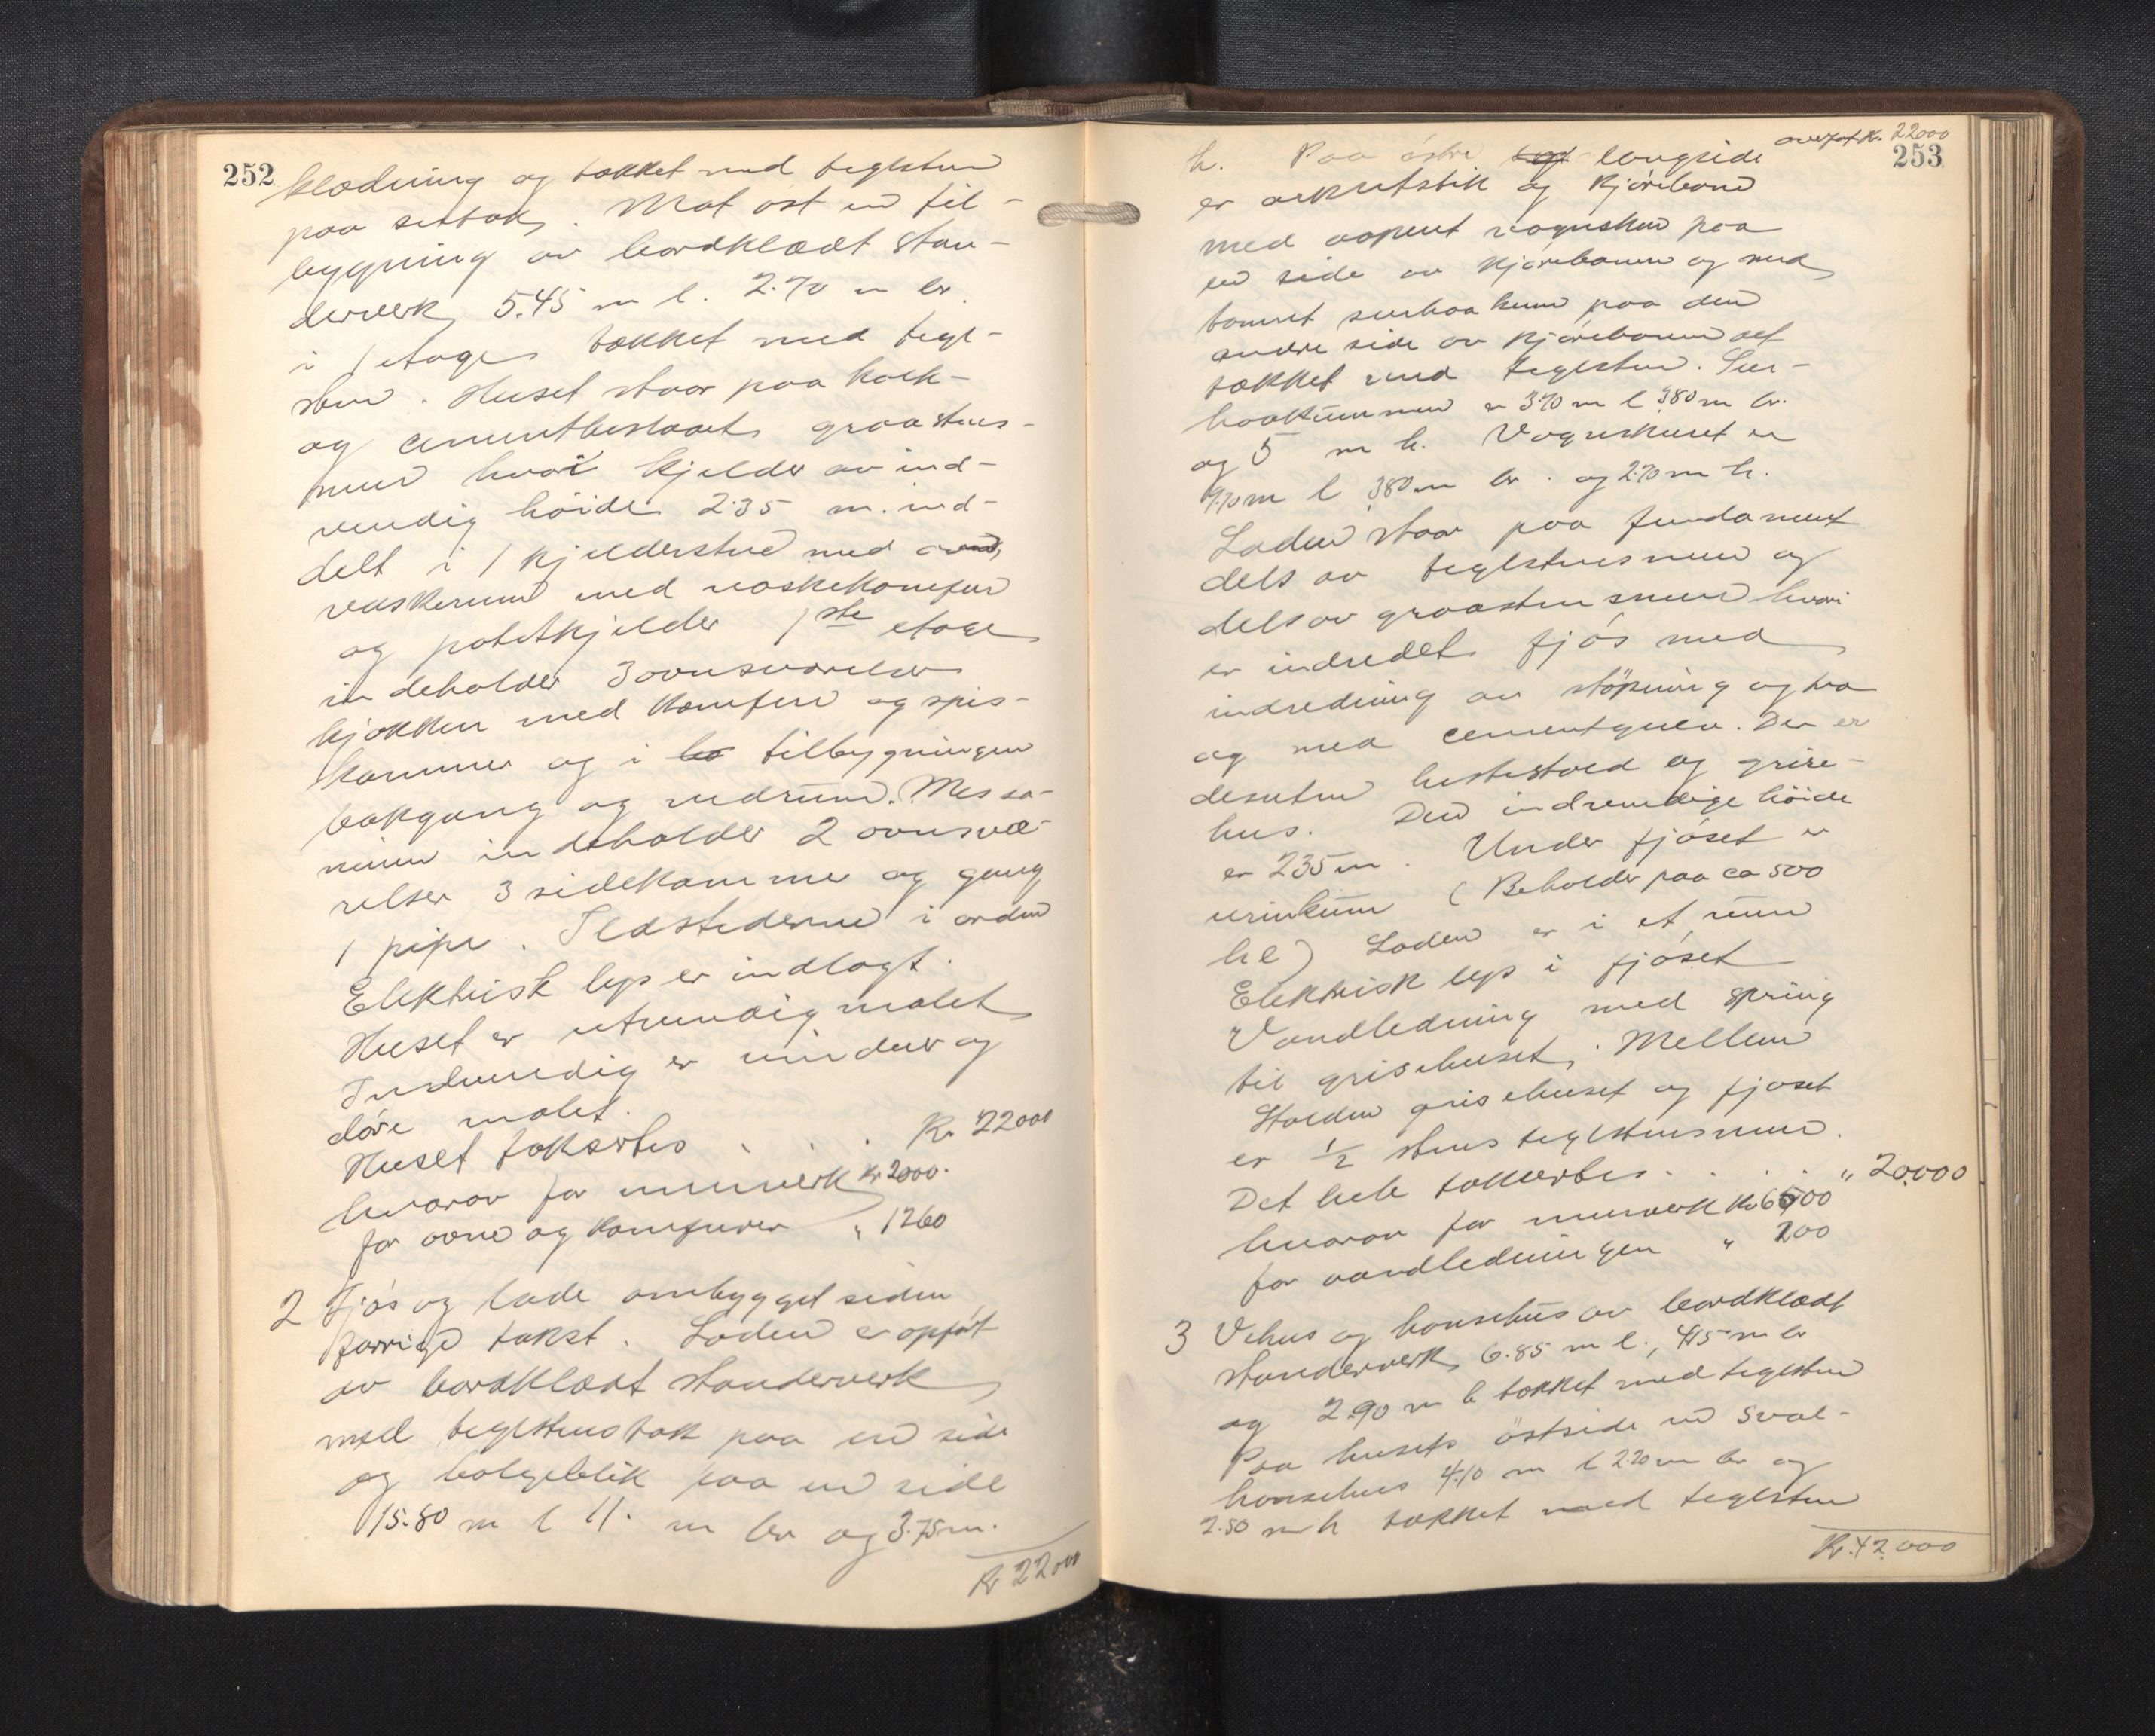 252
klædning og tækket med teglsten
paa sutak. Mot öst en til-
bygning av bordklædt stan-
derverk 5.45 m l. 2.70 m br.
i 1 etage tækket med tegl-
sten. Huset staar paa kalk-
og cementbeslaaet graastens-
mur hvori kjelder av ind-
vendig höide 2.35 m. ind-
delt i 1 kjelderstue med
vaskerum med vaskekomfur
og potetkjelder 1ste etage
indeholder 3 ovnsværelser
kjøkken med komfur og spis-
kammer og i tilbygningen
bakgang og vedrum. Messa-
ninen indeholder 2 ovnsvæ-
relser 3 sidekammer og gang
1 pipe. Ildstederne i orden
Elektrisk lys er indlagt.
Huset er utvendig malet
Indvendig er vinduer og
döre malet.
Huset takseres . . . Kr. 22000
hvorav for murverk Kr 2000.
for ovne og komfurer " 1260
2 Fjös og lade ombygget siden
forrige takst. Laden er opført
av bordklædt standerverk
med teglstenstak paa en side
og bølgeblik paa en side
15.80 m l 11. m br og 3.75 m.
Kr 22000
overført Kr. 22000
253
h. Paa östre langside
er og kjörebane
med aapent vognskur paa
en side av kjörebanen og med
tomret surhaakum paa den
andre side av kjörebanen alt
tækket med teglsten. Sur-
haakummen er 3.70 m l 3.80 m br.
og 5 m h. Vognskuret er
9.70 m l 3.80 m br. og 2.70 m h.
Laden staar paa fundament
dels av teglstensmur og
dels av graastensmur hvori
er indredet fjös med
indredning av støpning og træ
og med cementgulv. Der er
desuten hestestald og grise-
hus. Den indvendige höide
er 2.35 m. Under fjöset er
urinkum (Beholder paa ca 500
hl) Laden er i et rum
Elektrisk lys i fjöset
Vandledning med spring
til grisehuset. Mellem
Stalden grisehuset og fjøset
er ½ stens teglstensmur.
Det hele takseres . . . " 20.000
hvorav for murverk Kr 6500
for vandledningen " 200
3 Vehus og hønsehus av bordklædt
standerverk 6.85 m l., 4.15 m br
og 2.90 m h tækket med teglsten
Paa husets östside en sval-
hønsehus 4.10 m l 2.20 m br og
2.50 m h tækket med teglsten
Kr. 42.000